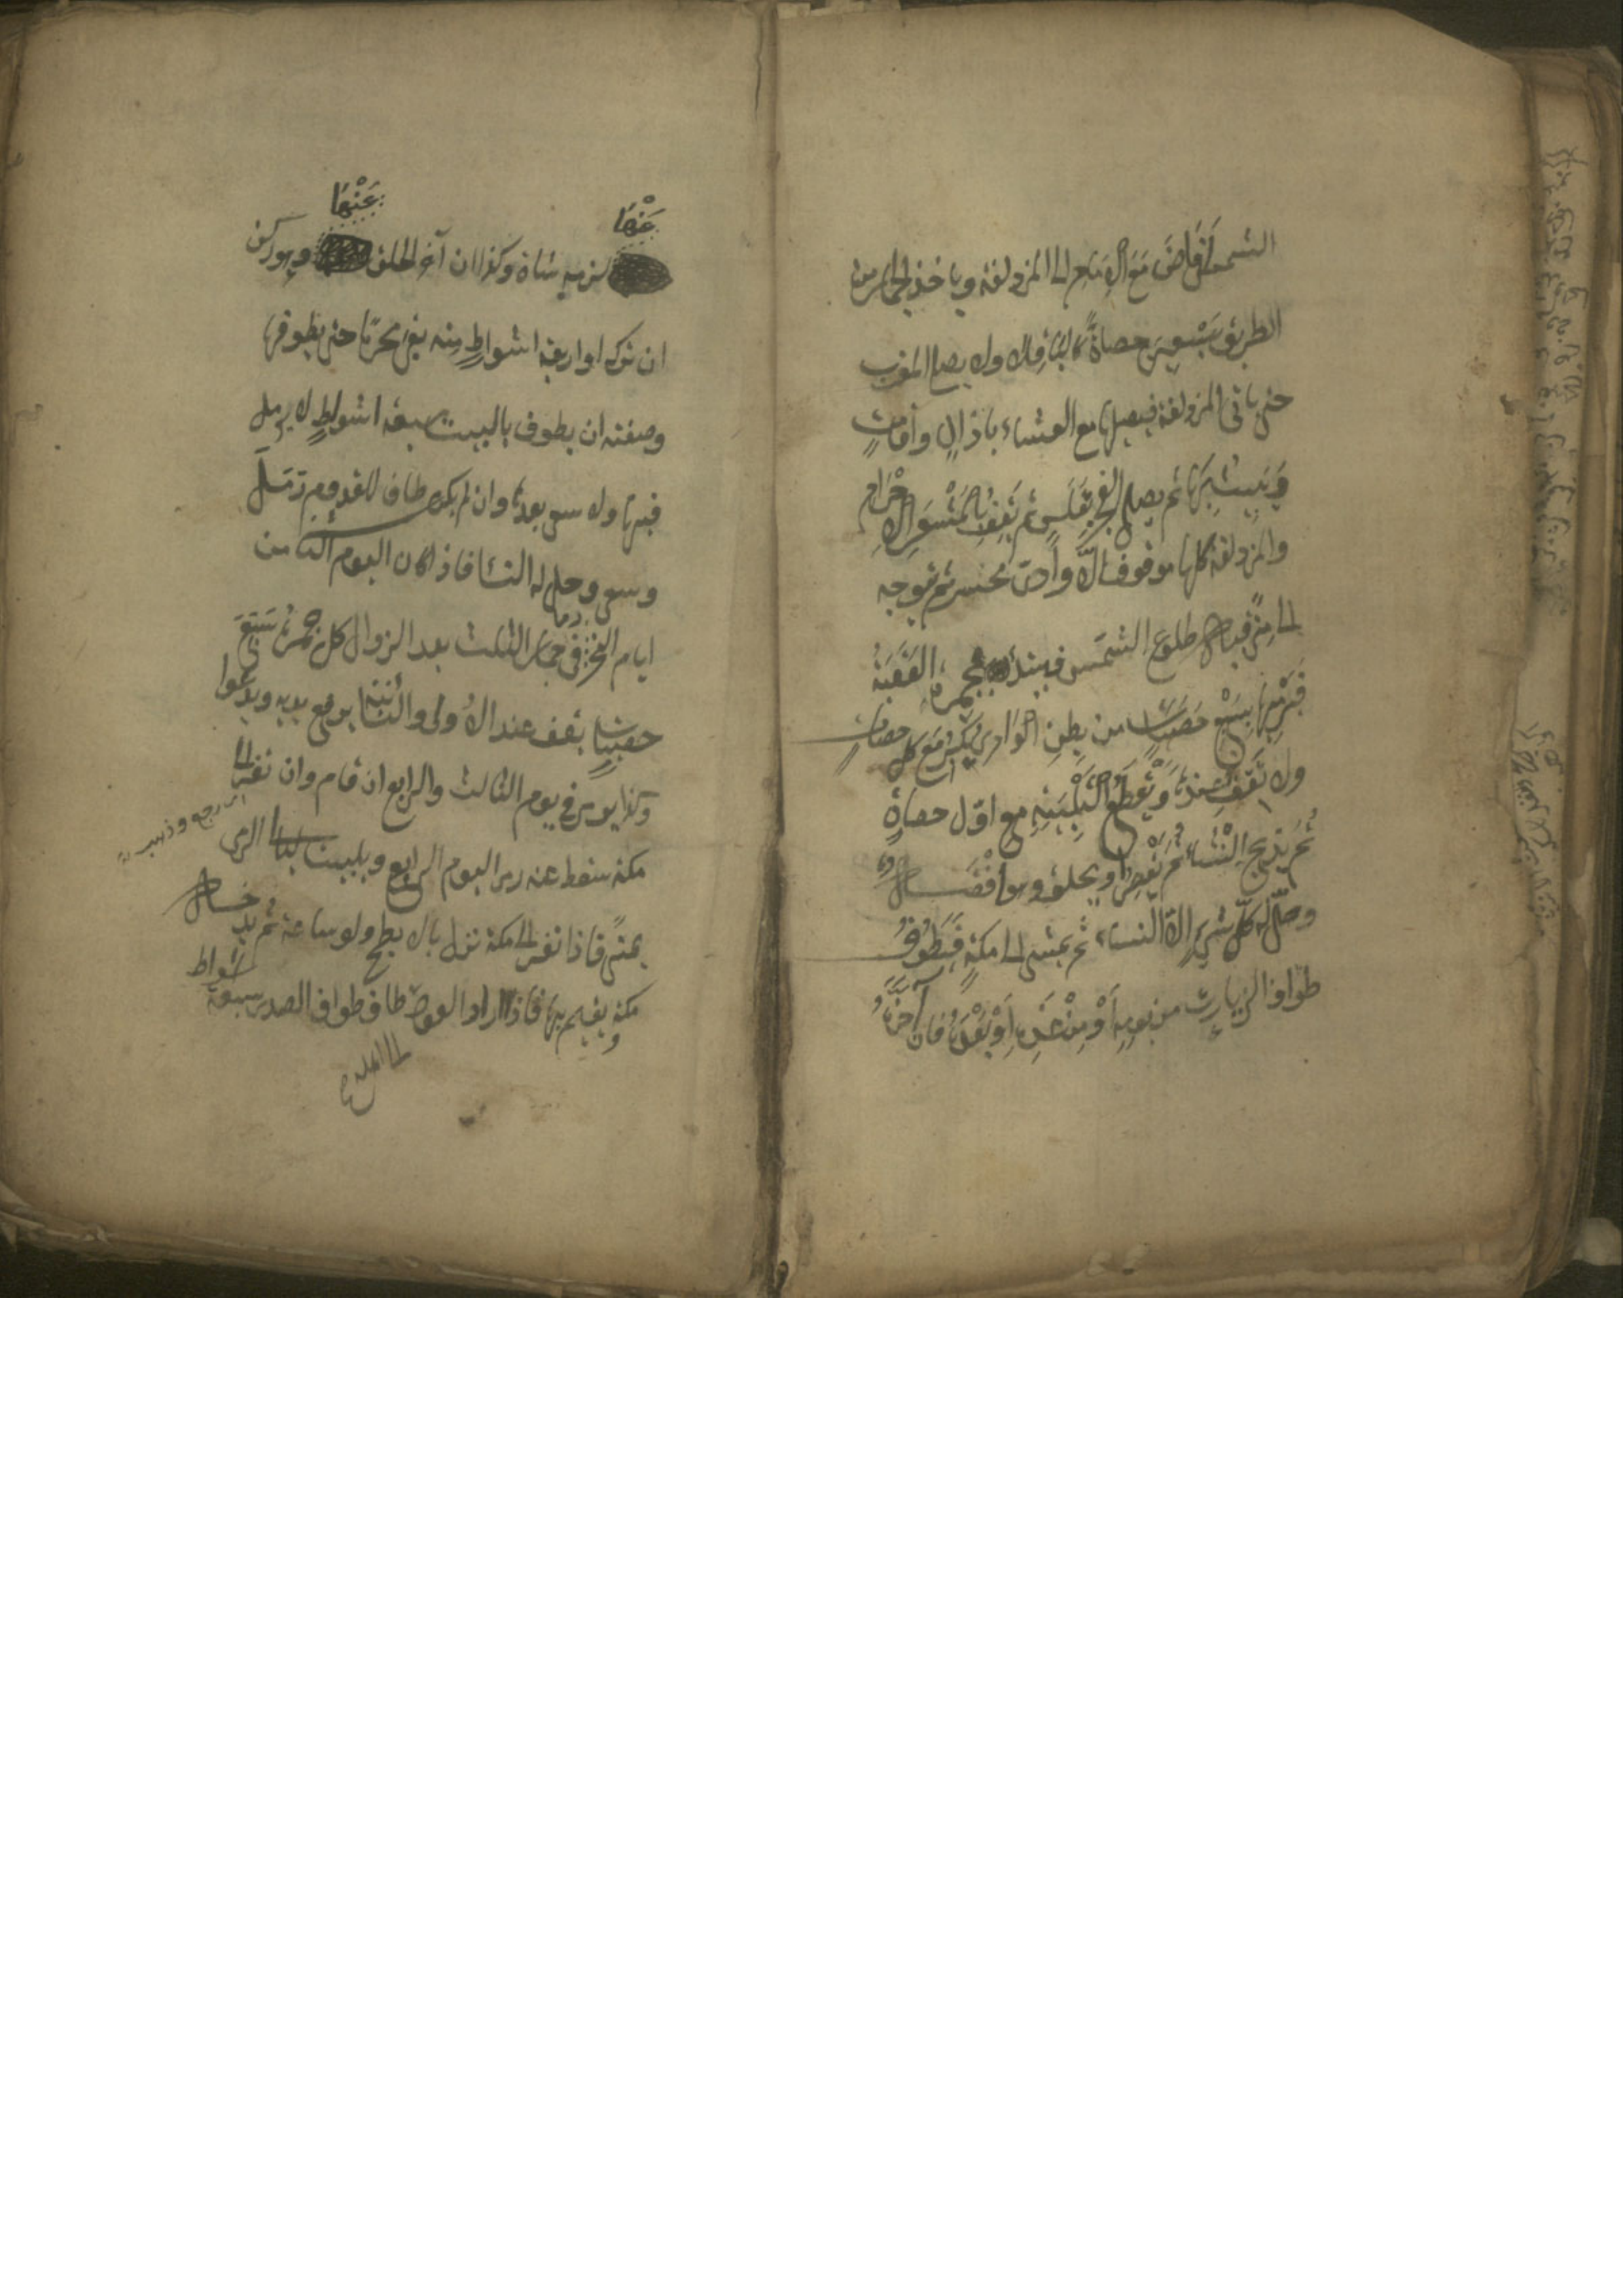 الشمس أفاض مع الإمام الى المزدلفة ويأخذ الجمار من
الطريق سبعين حصاة كالباقلاء ولا يصلي المغرب
حتى يأتي المزدلفة فيصليها مع العشاء باذان واقامت
ويبيت بها ثم يصلي الفجر بغلس ثم يقف بالمشعر الحرام
والمزدلفة كلها موقوف الا وادى محسر ثم توجه
الى منى قبل طلوع الشمس فيبتدئ بجمرة العقبة
فيرميها بسبع حصيات من بطن الوادي يكبر مع كل حصات
ولا يقف عندها ويقطع التلبية مع اول حصاة
ثم يذبح ان شاء ثم يقصر او يحلق وهو افضل
وحل له كل شيء الا النساء ثم يمشى الى مكة فيطوف
طواف الزيارت من يومه أو من غده أو بعده فان آخره
عنها عنها
لزمه شاة وكذا ان آخر الحلق وهو ركن
ان ترك اواربعة اشواط منه بقى محرما حتى يطوفها
وصفته ان يطوف بالبيت سبعة اشواط لا يرمل
فيها ولا سعى بعده وان لم يكن طاف للقدوم رمل
وسعى وحل له النساء فاذا كان اليوم الثامن
ايام النحر رمى جمار الثلث بعد الزوال كل جمرة بسبع
حصيات يقف عند الاولى والثانية يرفع يديه ويدعوا
وكذا يومى في يوم الثالث والرابع ان قام وان نفر الى
اى رجع وذهب
مكة سقط عنه رمى اليوم الرابع ويبيت ليالى الرمى
بمنى فاذا نفر الى مكة نزل بالابطح ولو ساعة ثم يدخل
مكة ويقيم بها فاذا اراد العود طاف طواف الصدر سبعة اشواط
الى اهله